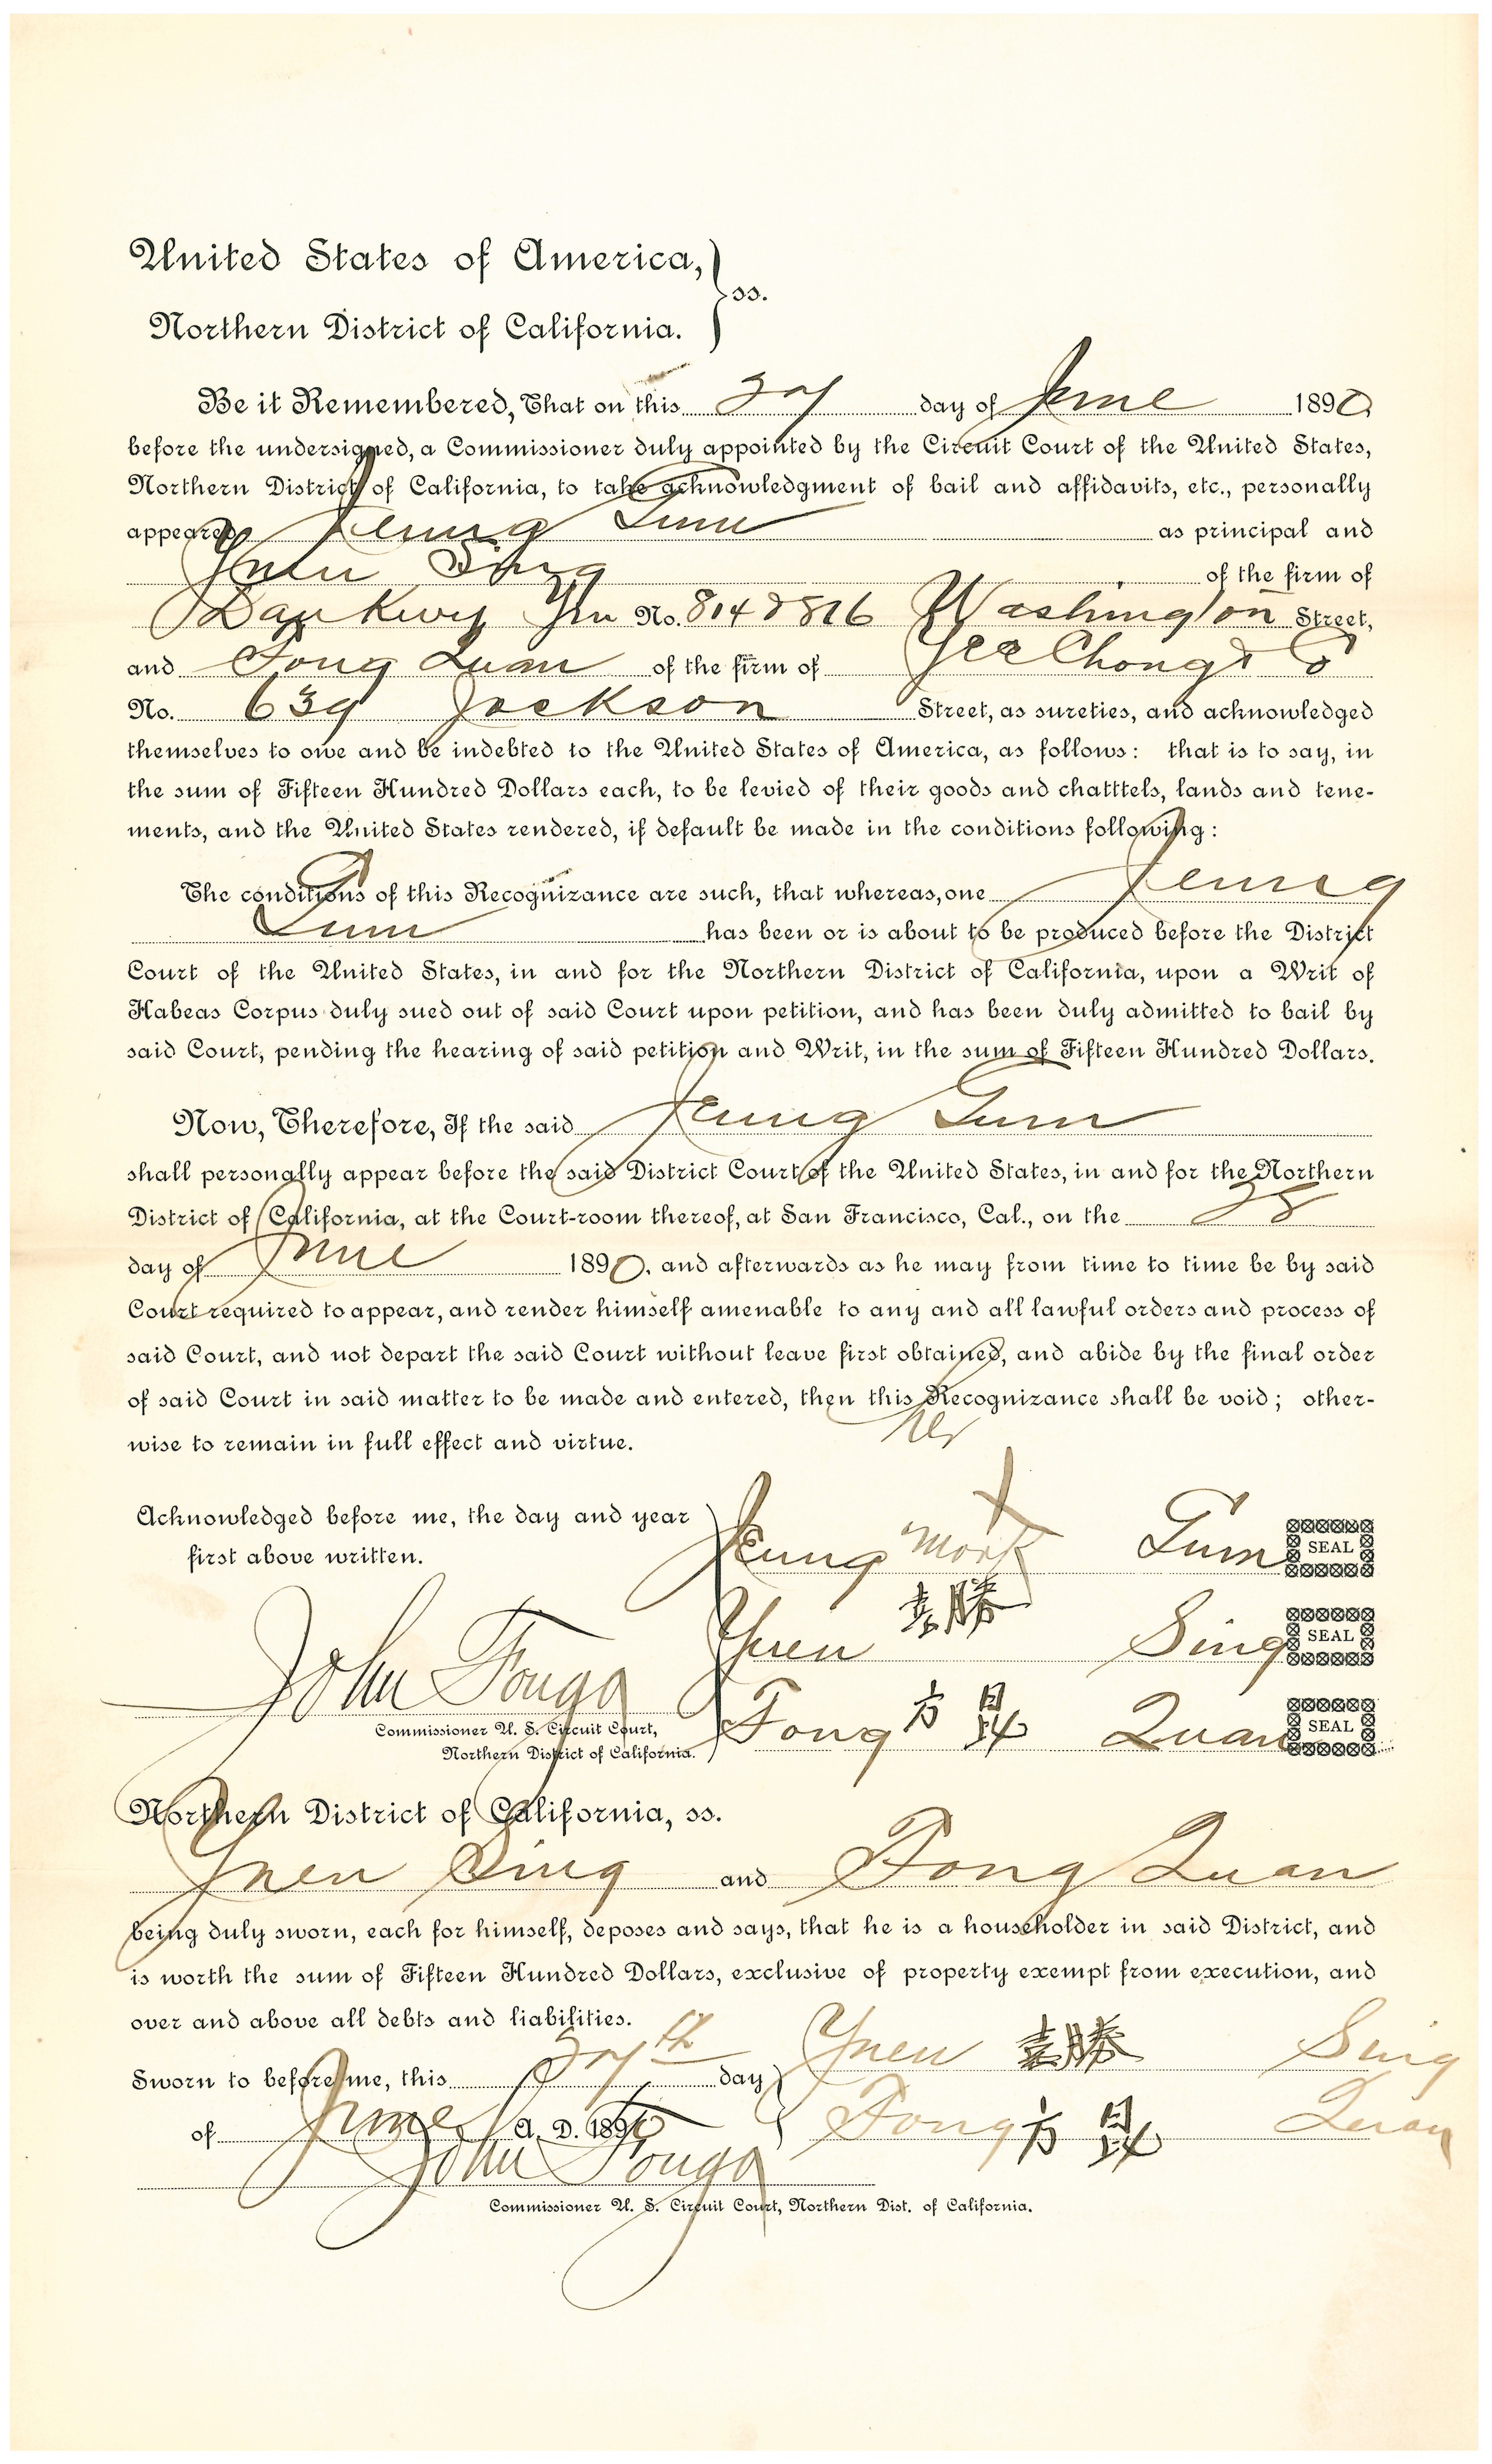 United States of America,
Northern District of California. } ss.
Be it Remembered, That on this 27 day of June 1890
before the undersigned, a Commissioner duly appointed by the Circuit Court of the United States,
Northern District of California, to take acknowledgment of bail and affidavits, etc., personally
appeared Jeung Lum as principal and
Yuen Sing of the firm of
Day Kwy Yin No. 814 & 816 Washington Street,
and Fong Quan of the firm of Yee Chong & Co
No. 639 Jackson Street, as sureties, and acknowledged
themselves to owe and be indebted to the United States of America, as follows: that is to say, in
the sum of Fifteen Hundred Dollars each, to be levied of their goods and chatttels, lands and tene-
ments, and the United States rendered, if default be made in the conditions following:
The conditions of this Recognizance are such, that whereas, one Jeung
Lum has been or is about to be produced before the District
Court of the United States, in and for the Northern District of California, upon a Writ of
Habeas Corpus duly sued out of said Court upon petition, and has been duly admitted to bail by
said Court, pending the hearing of said petition and Writ, in the sum of Fifteen Hundred Dollars.
Now, Therefore, If the said Jeung Lum
shall personally appear before the said District Court of the United States, in and for the Northern
District of California, at the Court-room thereof, at San Francisco, Cal., on the 28
day of June 1890. and afterwards as he may from time to time be by said
Court required to appear, and render himself amenable to any and all lawful orders and process of
said Court, and not depart the said Court without leave first obtained, and abide by the final order
of said Court in said matter to be made and entered, then this Recognizance shall be void; other-
wise to remain in full effect and virtue.
her
Acknowledged before me, the day and year
first above written.
Jeung mark Lum SEAL
Yuen 嘉勝 Sing SEAL
John Fouga
Fong 方 Quan SEAL
Commissioner U. S. Circuit Court,
Northern District of California.
Northern District of California, ss.
Yuen Sing and Fong Quan
being duly sworn, each for himself, deposes and says, that he is a householder in said District, and
is worth the sum of Fifteen Hundred Dollars, exclusive of property exempt from execution, and
over and above all debts and liabilities.
Sworn to before me, this 27th day
Yuen 嘉勝 Sing
of June A. D. 1890
Fong 方 Quan
John Fouga
Commissioner U. S. Circuit Court, Northern Dist. of California.